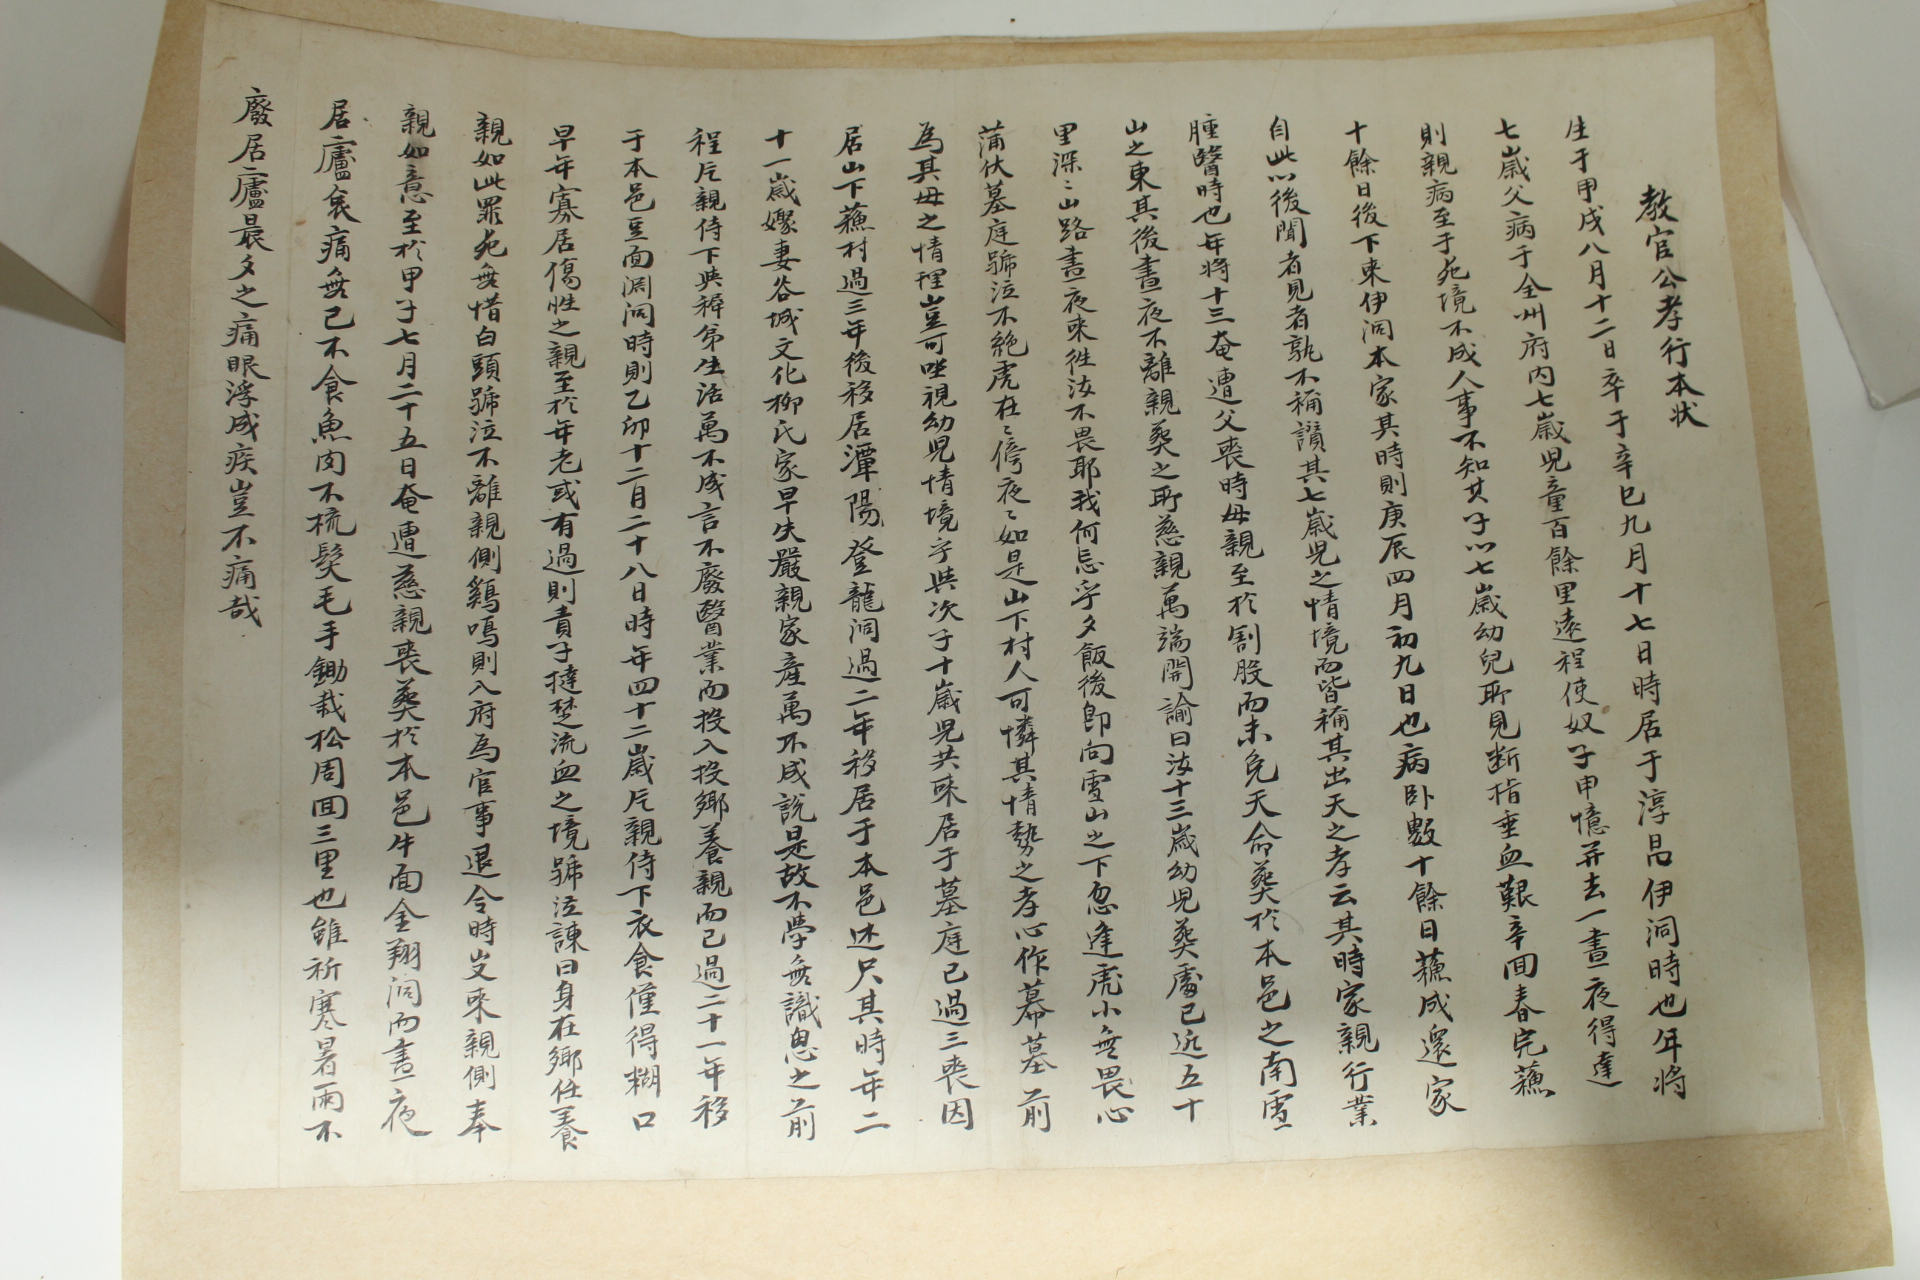 教官公孝行本状
生于甲戌八月十二日卒于辛巳九月十七日時居于淳昌伊洞時也年将
七歲父病于全州府内七歲児童百餘里遠程使奴子甲憶并去一晝夜得達
則親病至于死境不成人事不知其子以七歲幼兒所見断指垂血艱辛回春完蘓
十餘日後下来伊洞本家其時則庚辰四月初九日也病卧數十餘日蘓成還家
自此以後聞者見者孰不稱讃其七歲児之情境而皆稱其出天之孝云其時家親行業
腫醫時也年将十三奄遭父喪時母親至於割股而未免天命葬於本邑之南雪
山之東其後晝夜不離親葬之所慈親萬端開諭曰汝十三歲幼児葬處已近五十
里深〻山路晝夜来徃汝不畏耶我何忘乎夕飯後即向雪山之下忽逢虎小無畏心
蒲伏墓庭號泣不絶虎在〻傍夜〻如是山下村人可憐其情勢之孝心作幕墓前
為其母之情理豈可坐視幼児情境乎與次子十歲児共来居于墓庭已過三喪因
居山下蘓村過三年後移居潭陽登龍洞過二年移居于本邑述尺其時年二
十一歲娶妻谷城文化柳氏家早失嚴親家産萬不成說是故不學無識思之前
程片親侍下與稺弟生活萬不成言不廢醫業而投入投鄉養親而已過二十一年移
于本邑豆面洞時則乙卯十二月二十八日時年四十二歲片親侍下衣食僅得糊口
早年寡居傷性之親至於年老或有過則責子撻楚流血之境號泣諫曰身在鄉任養
親如此罪死無惜白頭號泣不離親側鷄鳴則入府為官事退令時岌来親側奉
親如意至於甲子七月二十五日奄遭慈親喪葬於本邑牛面金翔洞而晝夜
居廬哀痛無已不食魚肉不梳髮毛手鋤栽松周回三里也雖祈寒暑雨不
廢居廬最夕之痛眼浮成疾豈不痛哉